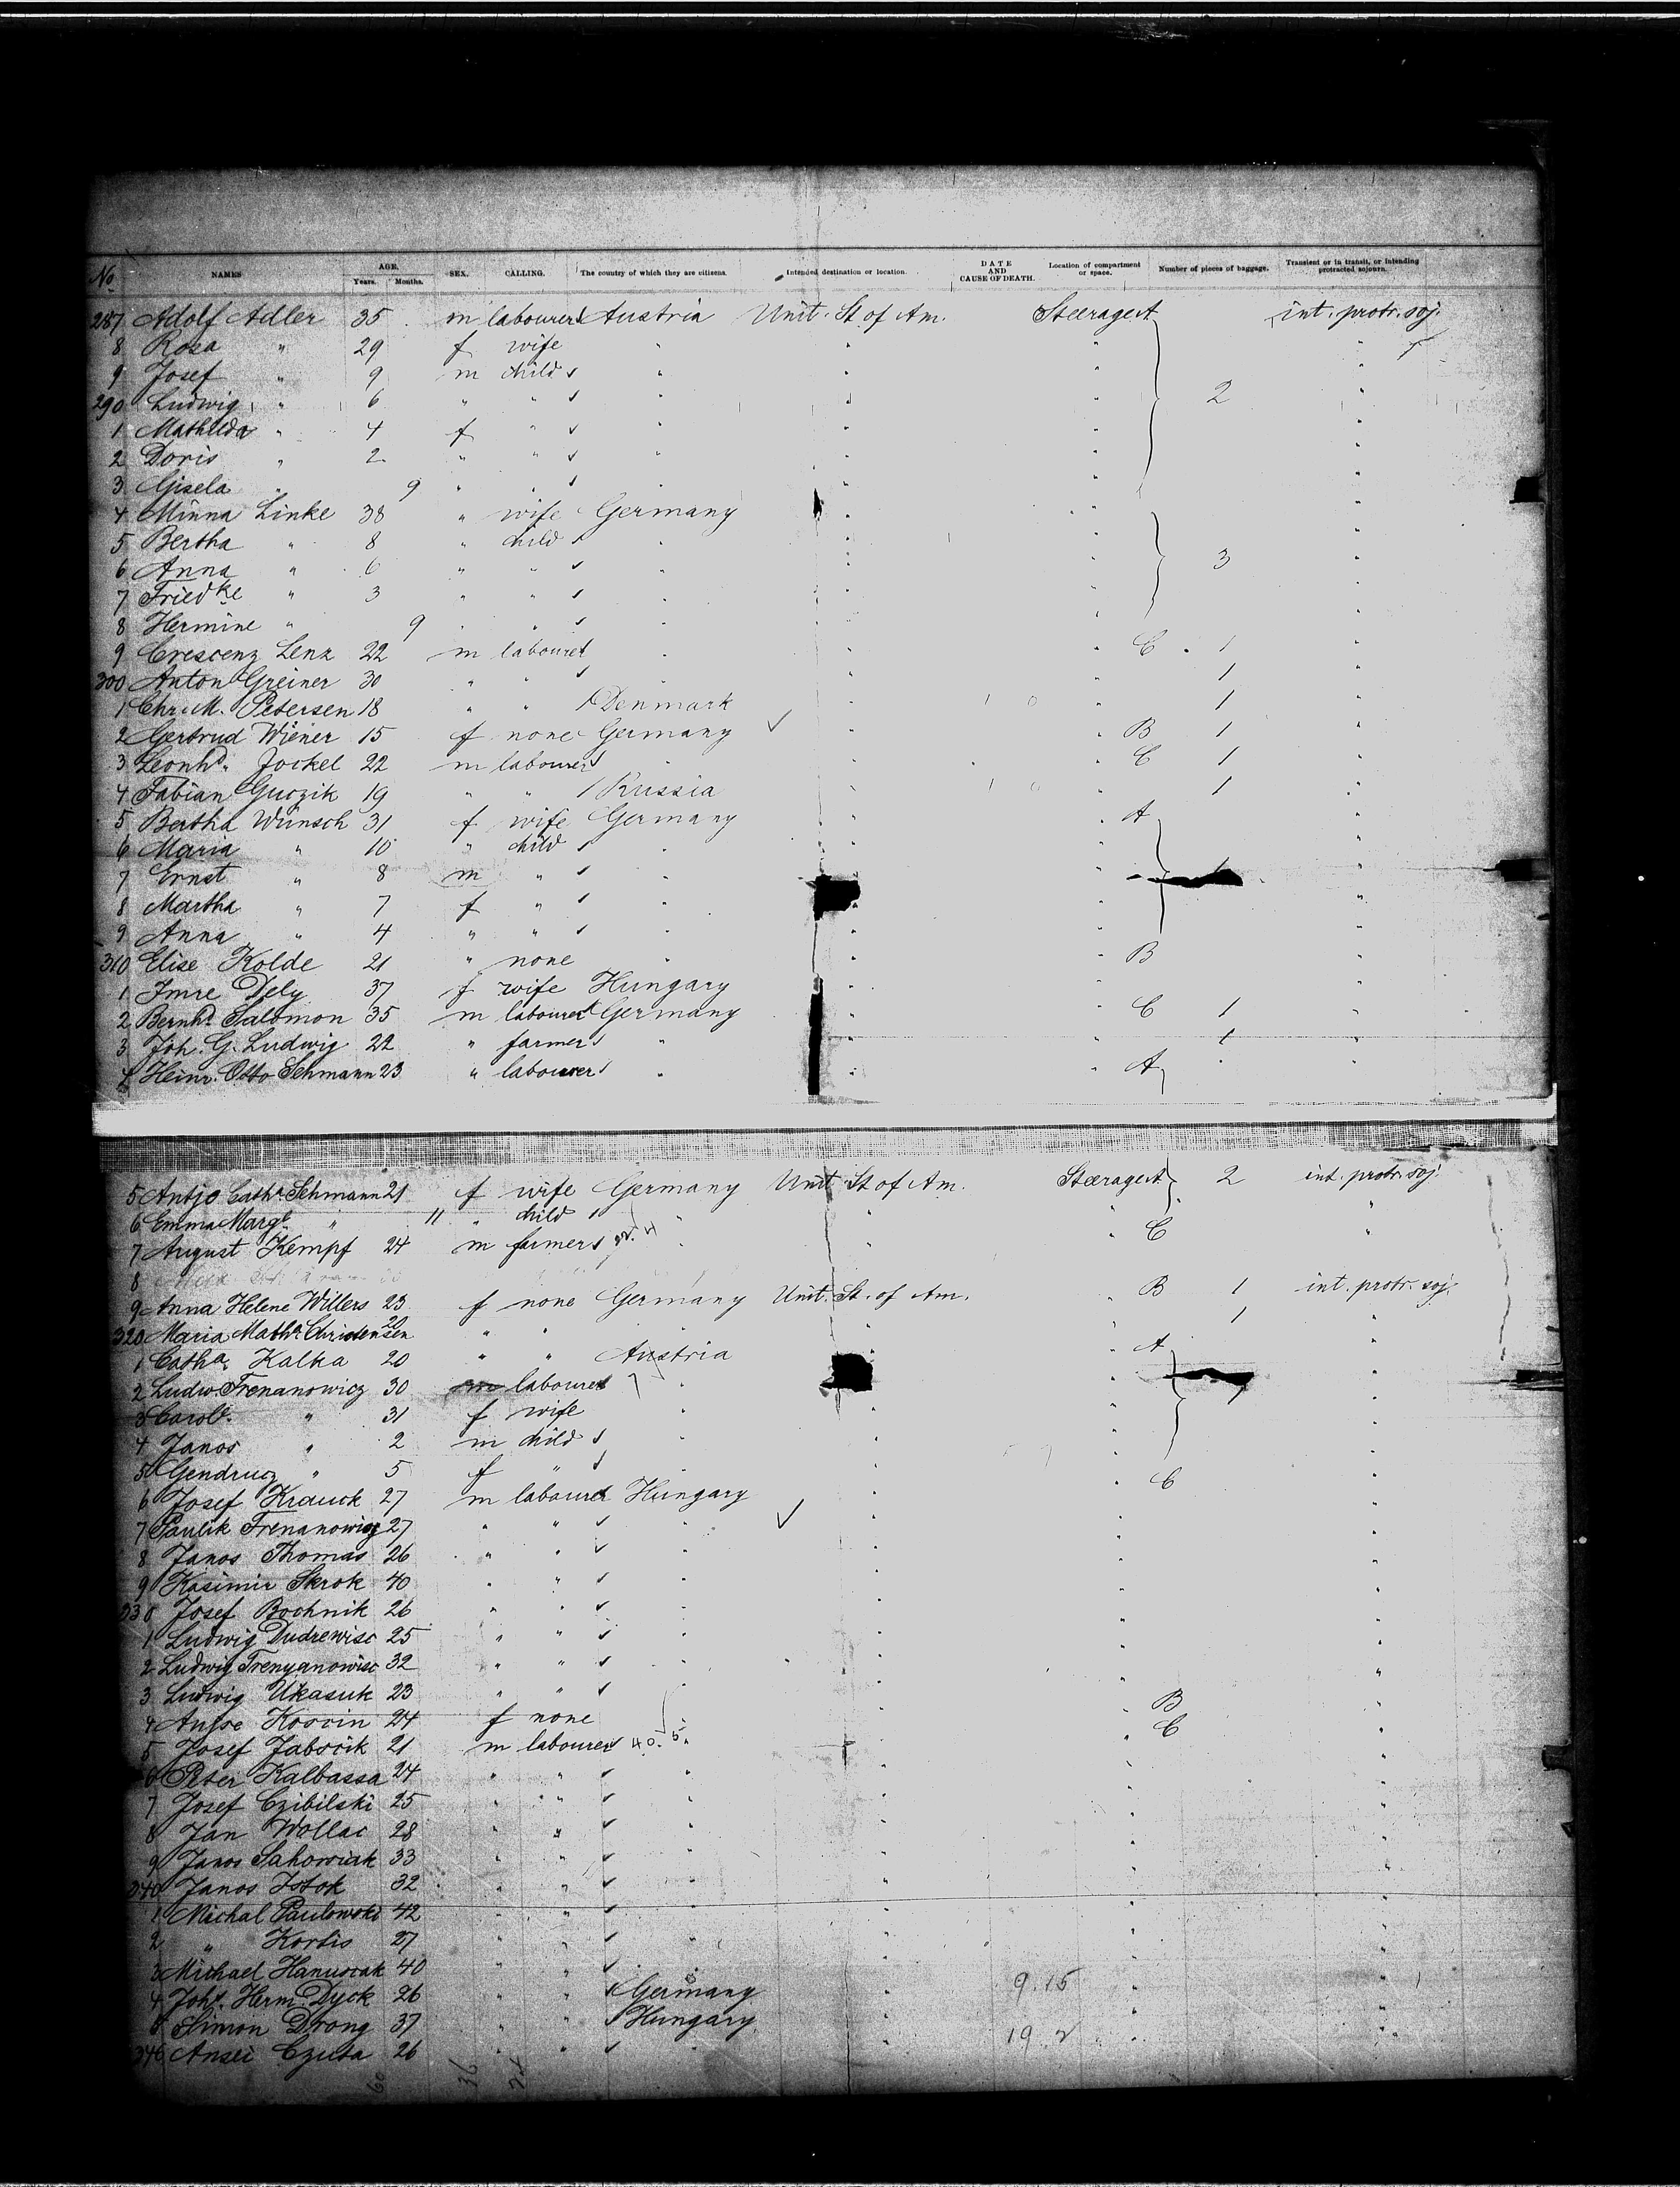 No. NAMES AGE. Years. Months. SEX. CALLING. The country of which they are citizens. Intended destination or location. DATE AND CAUSE OF DEATH. Location of compartment or space. Number of pieces of baggage. Transient or in transit, or intending protracted sojourn.
287 Adolf Adler 35 m labourer Austria Unit. St of Am. Steerage A int. protr. soj.
8 Rosa " 29 f wife " " " "
9 Josef " 9 m child " " " "
290 Ludwig " 6 " " " " " 2 "
1 Mathilda " 4 f " " " " "
2 Doris " 2 " " " " " "
3 Gisela " 9 " " " " " "
4 Minna Linke 38 " wife Germany " " "
5 Bertha " 8 " child " " " "
6 Anna " 6 " " " " " 3 "
7 Friedke " 3 " " " " " "
8 Hermine " 9 " " " " " "
9 Crescenz Lenz 22 m labourer " " " C 1 "
300 Anton Greiner 30 " " " " " 1 "
1 Chr. M. Petersen 18 " " Denmark " " 1 "
2 Gertrud Wiener 15 f none Germany " " B 1 "
3 Leonhd. Jockel 22 m labourer " " " C 1 "
4 Fabian Guczik 19 " " Russia " " 1 "
5 Bertha Wünsch 31 f wife Germany " " A "
6 Maria " 10 " child " " " "
7 Ernst " 8 m " " " " "
8 Martha " 7 f " " " " "
9 Anna " 4 " " " " " "
310 Elise Kolde 21 " none " " " B "
1 Imre Dely 37 f wife Hungary " " "
2 Bernhd. Salomon 35 m labourer Germany " " C 1 "
3 Joh. G. Ludwig 22 " farmer " " " 1 "
4 Heinr. Otto Sehmann 23 " labourer " " " A "
5 Antje Cath. Sehmann 21 f wife Germany Unit St of Am. Steerage A 2 int. protr. soj.
6 Emma Marge. " 11 " child " " " "
7 August Kempf 24 m farmer " " " C "
8
9 Anna Helene Willers 23 f none Germany Unit. St. of Am. " B 1 int. protr. soj.
320 Maria Matha. Christensen 20 " " " " " 1 "
1 Catha. Kalka 20 " " Austria " " A "
2 Ludw. Trenanowicz 30 m labourer " " " "
3 Carole. " 31 f wife " " " "
4 Janos " 2 m child " " " "
5 Gendrucz " 5 f " " " " C "
6 Josef Krauck 27 m labourer Hungary " " "
7 Paulik Trenanowicz 27 " " " " " "
8 Janos Thomas 26 " " " " " "
9 Kasimir Skrok 40 " " " " " "
330 Josef Bochnik 26 " " " " " "
1 Ludwig Dudrewisc 25 " " " " " "
2 Ludwig Trenyanowisc 32 " " " " " "
3 Ludwig Ukasuk 23 " " " " " B "
4 Kossin 24 f none " " " C "
5 Josef Jabscik 21 m labourer " " " "
6 Peter Kalbassa 24 " " " " " "
7 Josef Czibilski 25 " " " " " "
8 Jan Wollac 28 " " " " " "
9 Janos Sahowiak 33 " " " " " "
340 Janos Istok 32 " " " " " "
1 Michal Paulowski 42 " " " " " "
2 " Kortis 27 " " " " " "
3 Michael Hanuscak 40 " " " " " "
4 Johs. Herm Dyck 26 " " Germany " 9.15 " "
5 Simon Drong 37 " " Hungary " " "
346 Ansei Czuba 26 " " " " 19.2 " "
60 36 24